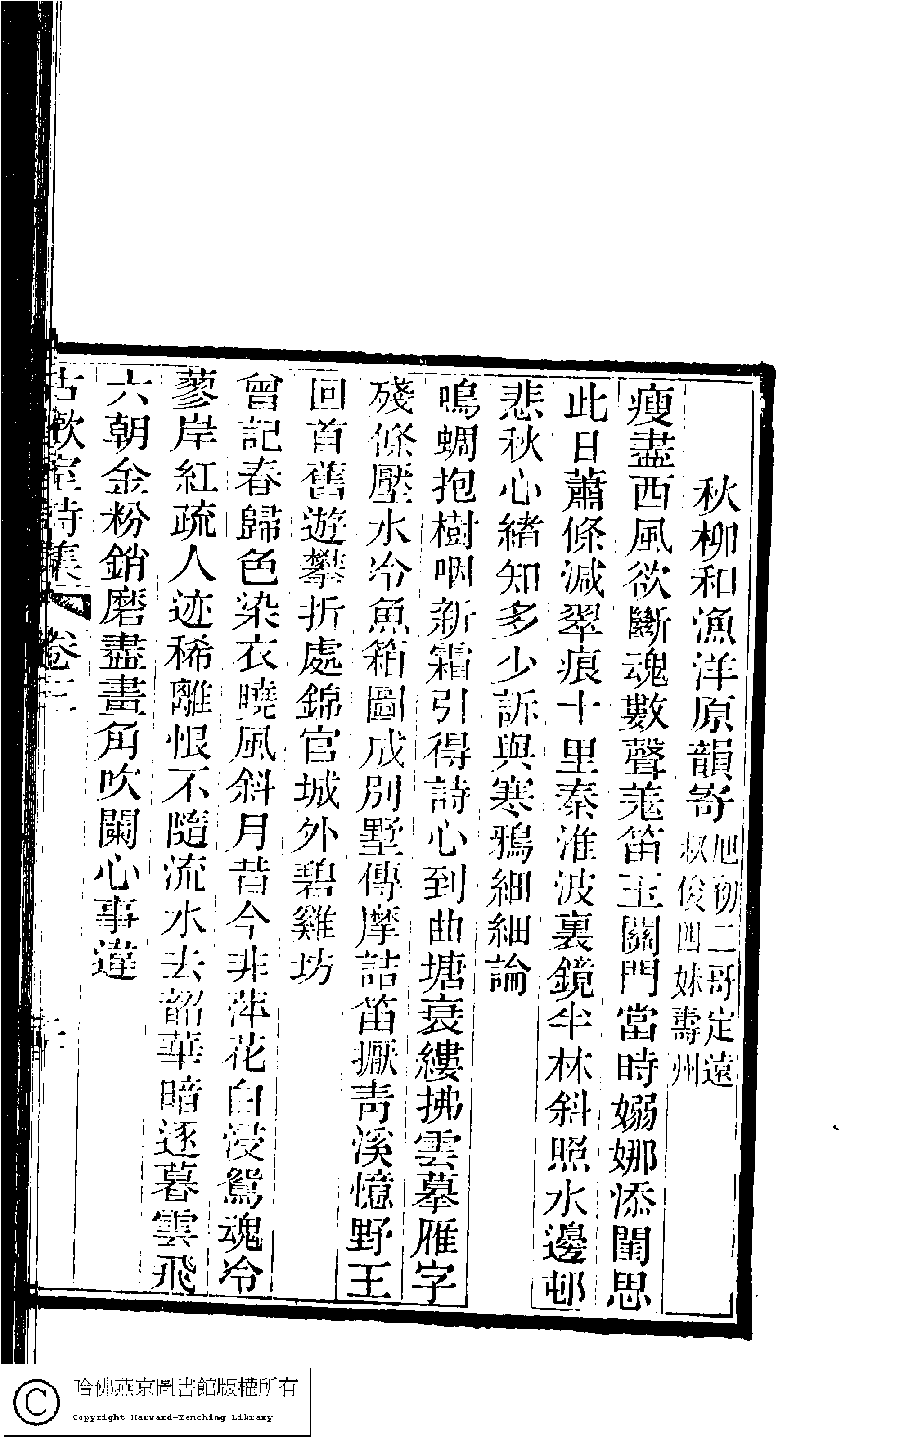 秋柳和漁洋原韻寄旭初二哥定遠叔俊四妹壽州
瘦盡西風欲斷魂數聲羗笛玉關門當時嫋娜添閨思
此日蕭條減翠痕十里秦淮波裏鏡半林斜照水邊邨
悲秋心緒知多少訴與寒鴉細細論
鳴蜩抱樹咽新霜引得詩心到曲塘衰縷拂雲摹雁字
殘條壓水冷魚箱圖成別墅傳摩詰笛擫靑溪憶野王
回首舊遊攀折處錦官城外碧雞坊
曾記春歸色染衣曉風斜月昔今非萍花白浸鴛魂冷
蓼岸紅疏人迹稀離恨不隨流水去韶華暗逐暮雲飛
六朝金粉銷磨盡畫角吹闌心事違
古歡室詩集 卷三
哈佛燕京圖書館版權所有
Copyright Harvard-Yenching Library